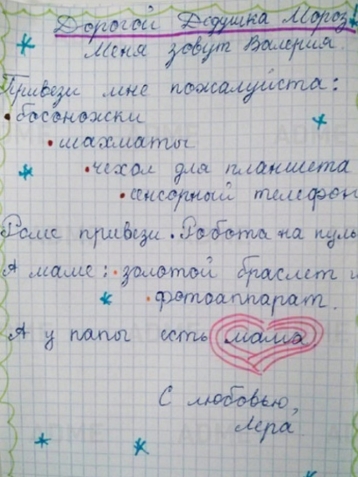 Дорогой Дедушка Мороз!
Меня зовут Валерия.
Привези мне пожалуйста:
• босоножки
• шахматы
• чехол для планшета
• сенсорный телефон
Роме привези • Робота на пуль
А маме: • золотой браслет и
• фотоаппарат.
А у папы есть мама
С любовью,
Лера